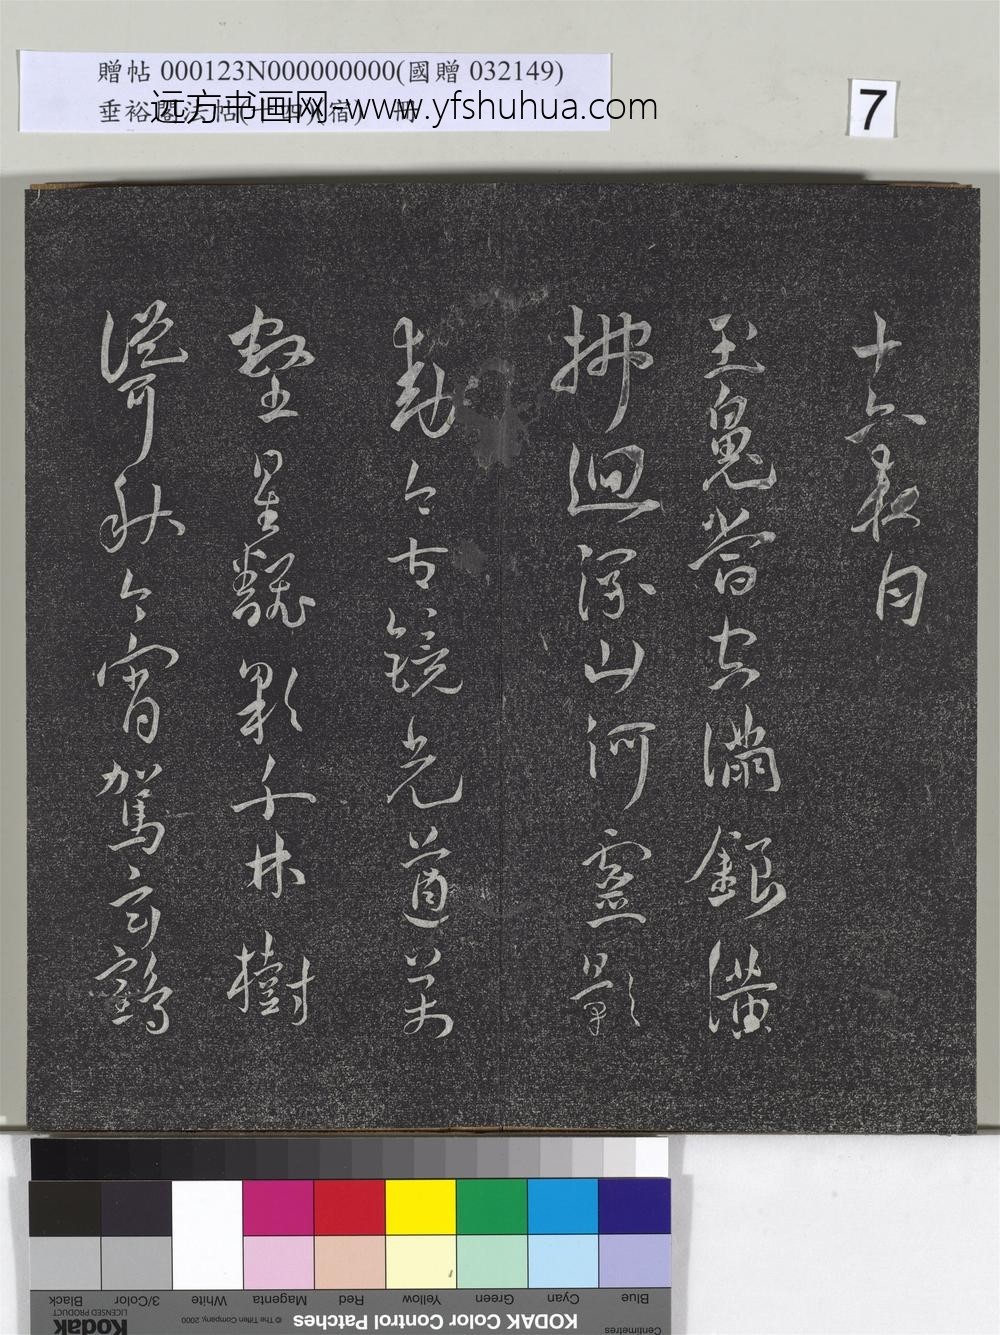 贈帖 000123N000000000(國贈 032149)
垂裕閣法帖(十四)(宿) 冊
远方书画网-www.yfshuhua.com
7
十六夜月
玉兔當空滿銀潢
拂迴深山河靈影
動今古鏡光萬
壑星影千林樹
聲秋今宵駕玄鶴
Black
3/Color
White
Magenta
Red
Yellow
Green
Cyan
Blue
LICENSED PRODUCT
Kodak
© The Tiffen Company, 2000
KODAK Color Control Patches
Centimetres